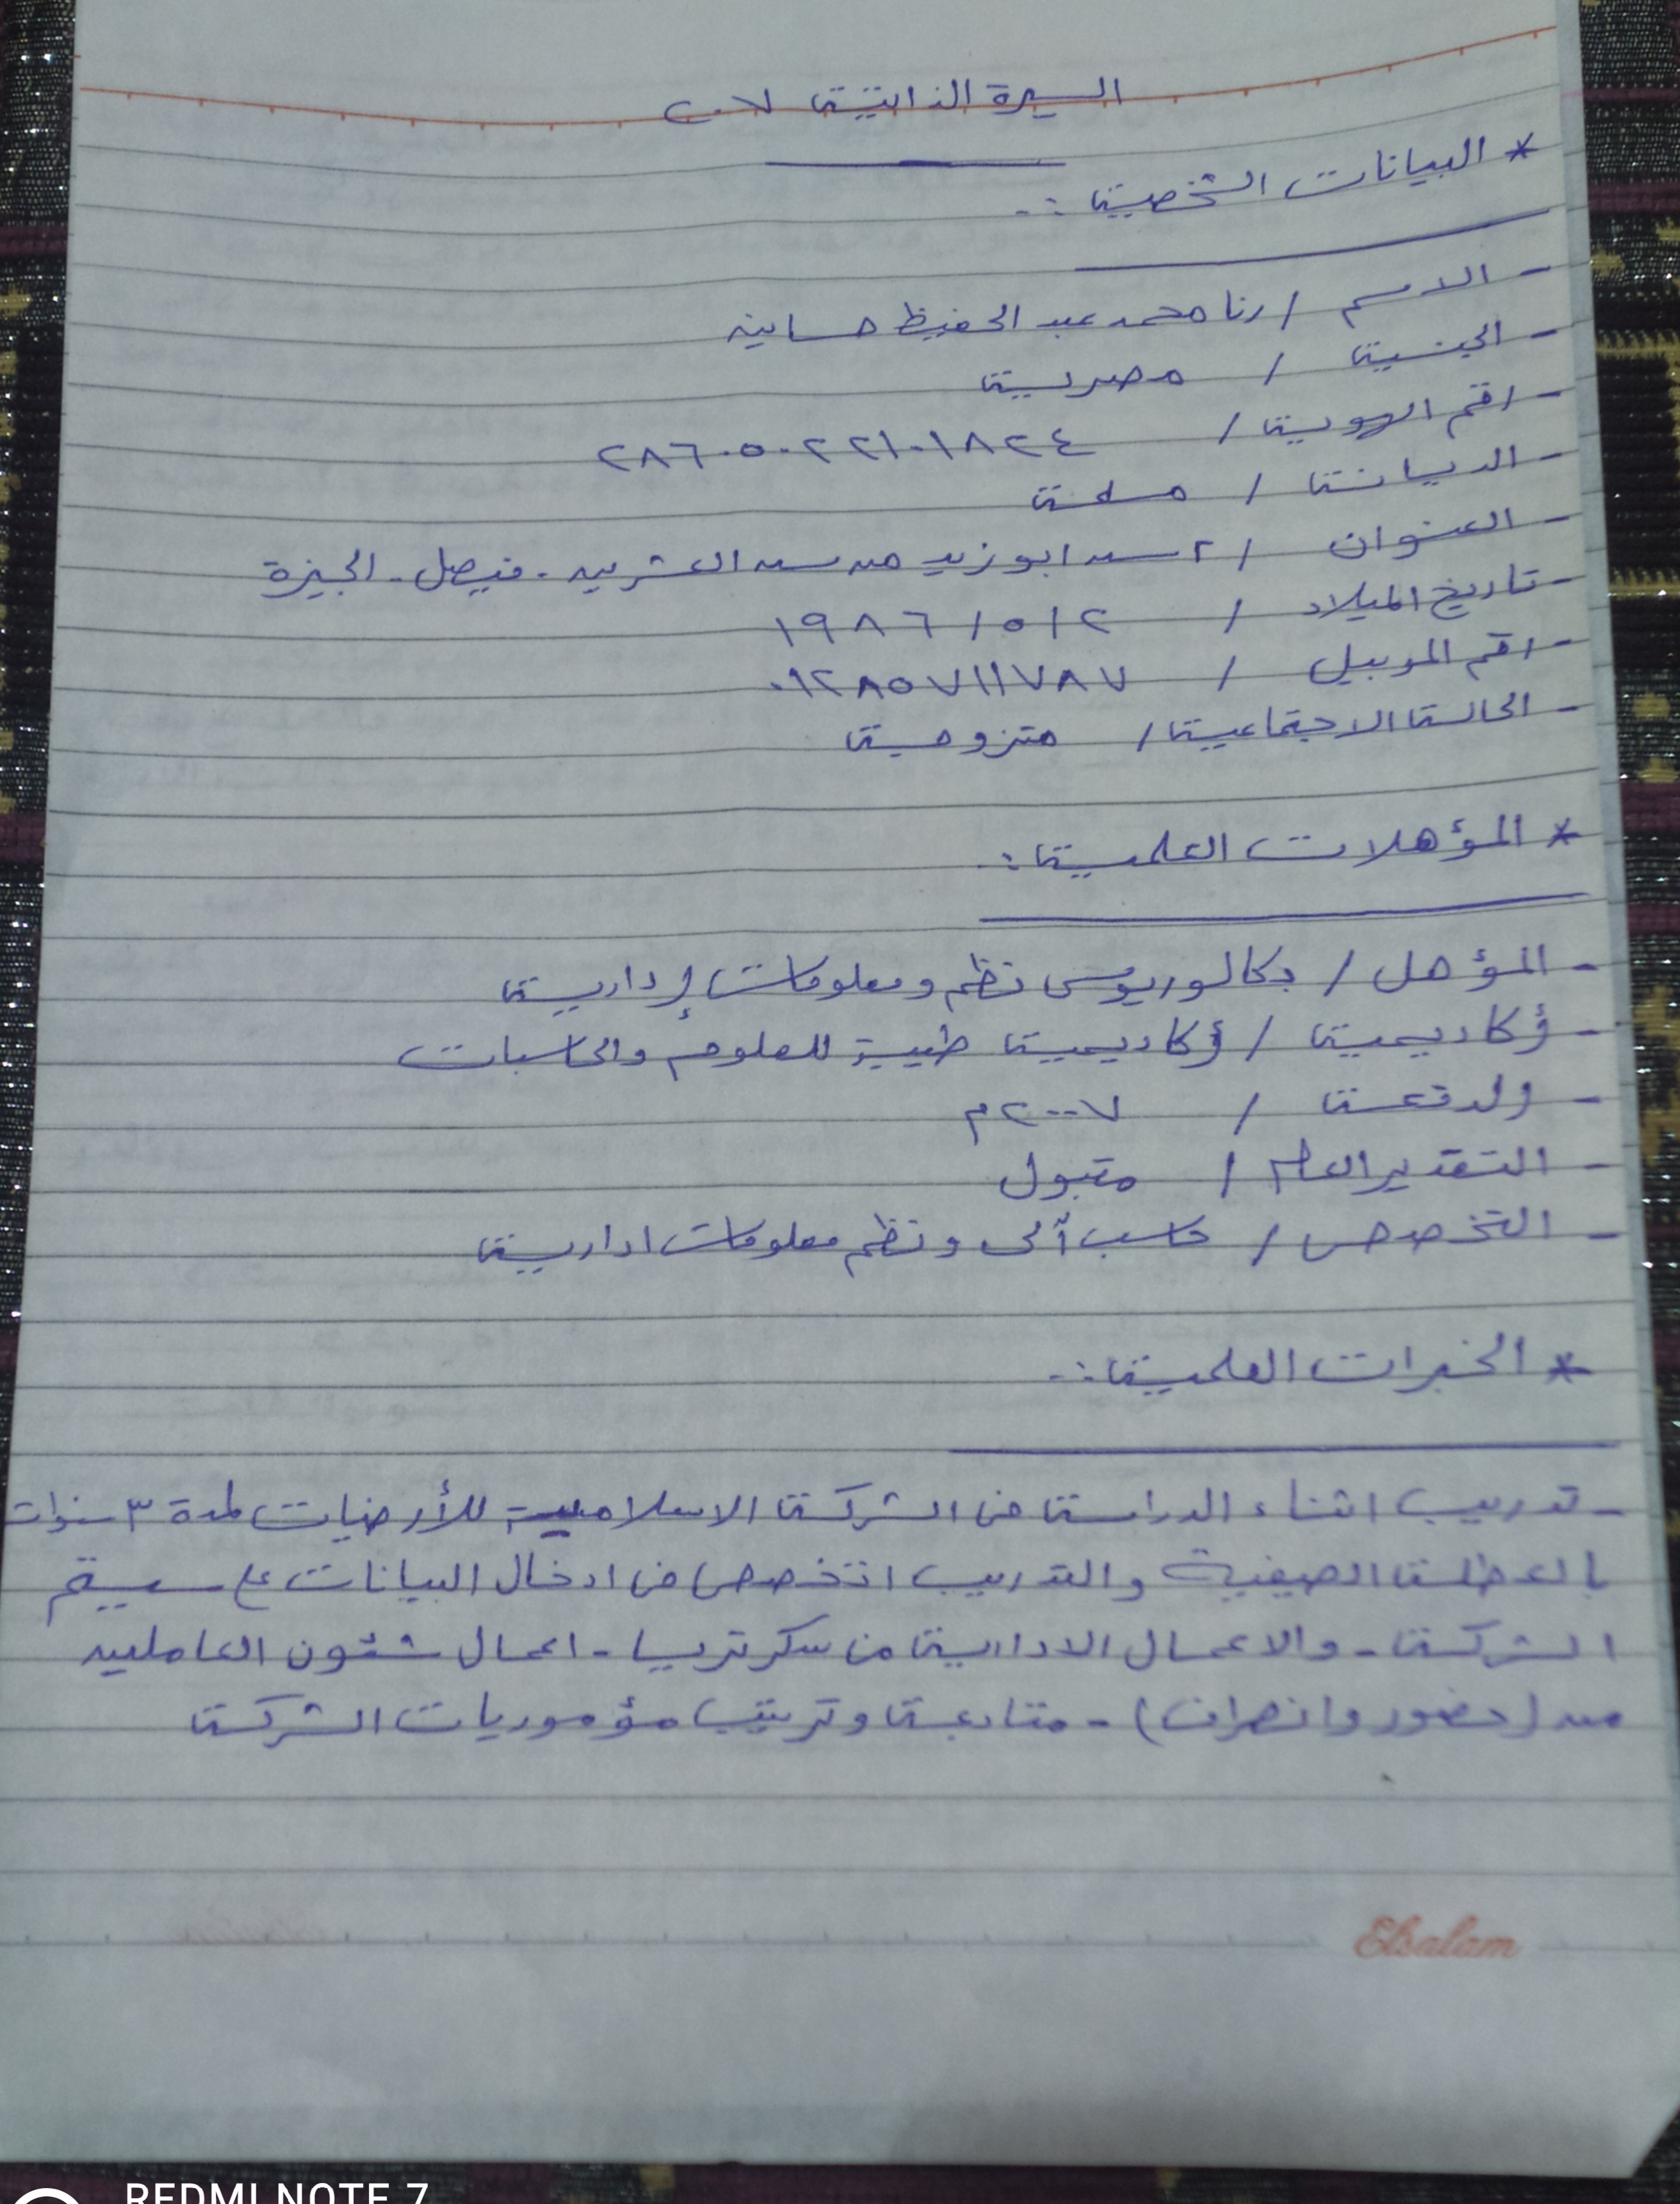 السيرة الذاتية لـ c.v
* البيانات الشخصية :-
- الاسم / رنا محمد عبد الحفيظ حسانين
- الجنسية / مصرية
- رقم الهوية / ٢٨٦٠٥٠٢٢١٠١٨٢٤
- الديانة / مسلمة
- العنوان / ٢ ش ابو زيد من ش العشرين - فيصل - الجيزة
- تاريخ الميلاد / ٢ / ٥ / ١٩٨٦
- رقم الموبيل / ٠١٢٨٥٧١١٧٨٧
- الحالة الاجتماعية / متزوجة
* المؤهلات العلمية :-
- المؤهل / بكالوريوس نظم ومعلومات إدارية
- أكاديمية / أكاديمية طيبة للعلوم والحاسبات
- ولدفعة / ٢٠٠٧م
- التقدير العام / مقبول
- التخصص / حاسب آلى ونظم معلومات ادارية
* الخبرات العلمية :-
- تدريب اثناء الدراسة فى الشركة الاسلامية للأرضيات لمدة ٣ سنوات
بالعطلة الصيفية والتدريب اتخصص فى ادخال البيانات ع سيستم
الشركة - والاعمال الادارية من سكرتريا - اعمال شئون العاملين
من (حضور وانصراف) - متابعة وترتيب مؤموريات الشركة
Elsalam
REDMI NOTE 7